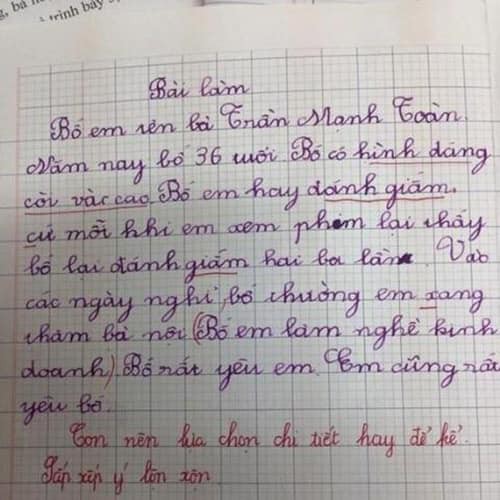 trình bày
Bài làm
Bố em tên là Trần Mạnh Toàn.
Năm nay bố 36 tuổi. Bố có hình dáng
còi vàc cao. Bố em hay dánh giấm.
cứ mỗi khi em xem phim lại thấy
bố lại đánh giấm hai ba lần. Vào
các ngày nghỉ, bố thường em xang
thăm bà nội (Bố em làm nghề kinh
doanh). Bố rất yêu em. Em cũng rất
yêu bố.
Con nên lựa chọn chi tiết hay để kể.
Sắp xếp ý lộn xộn